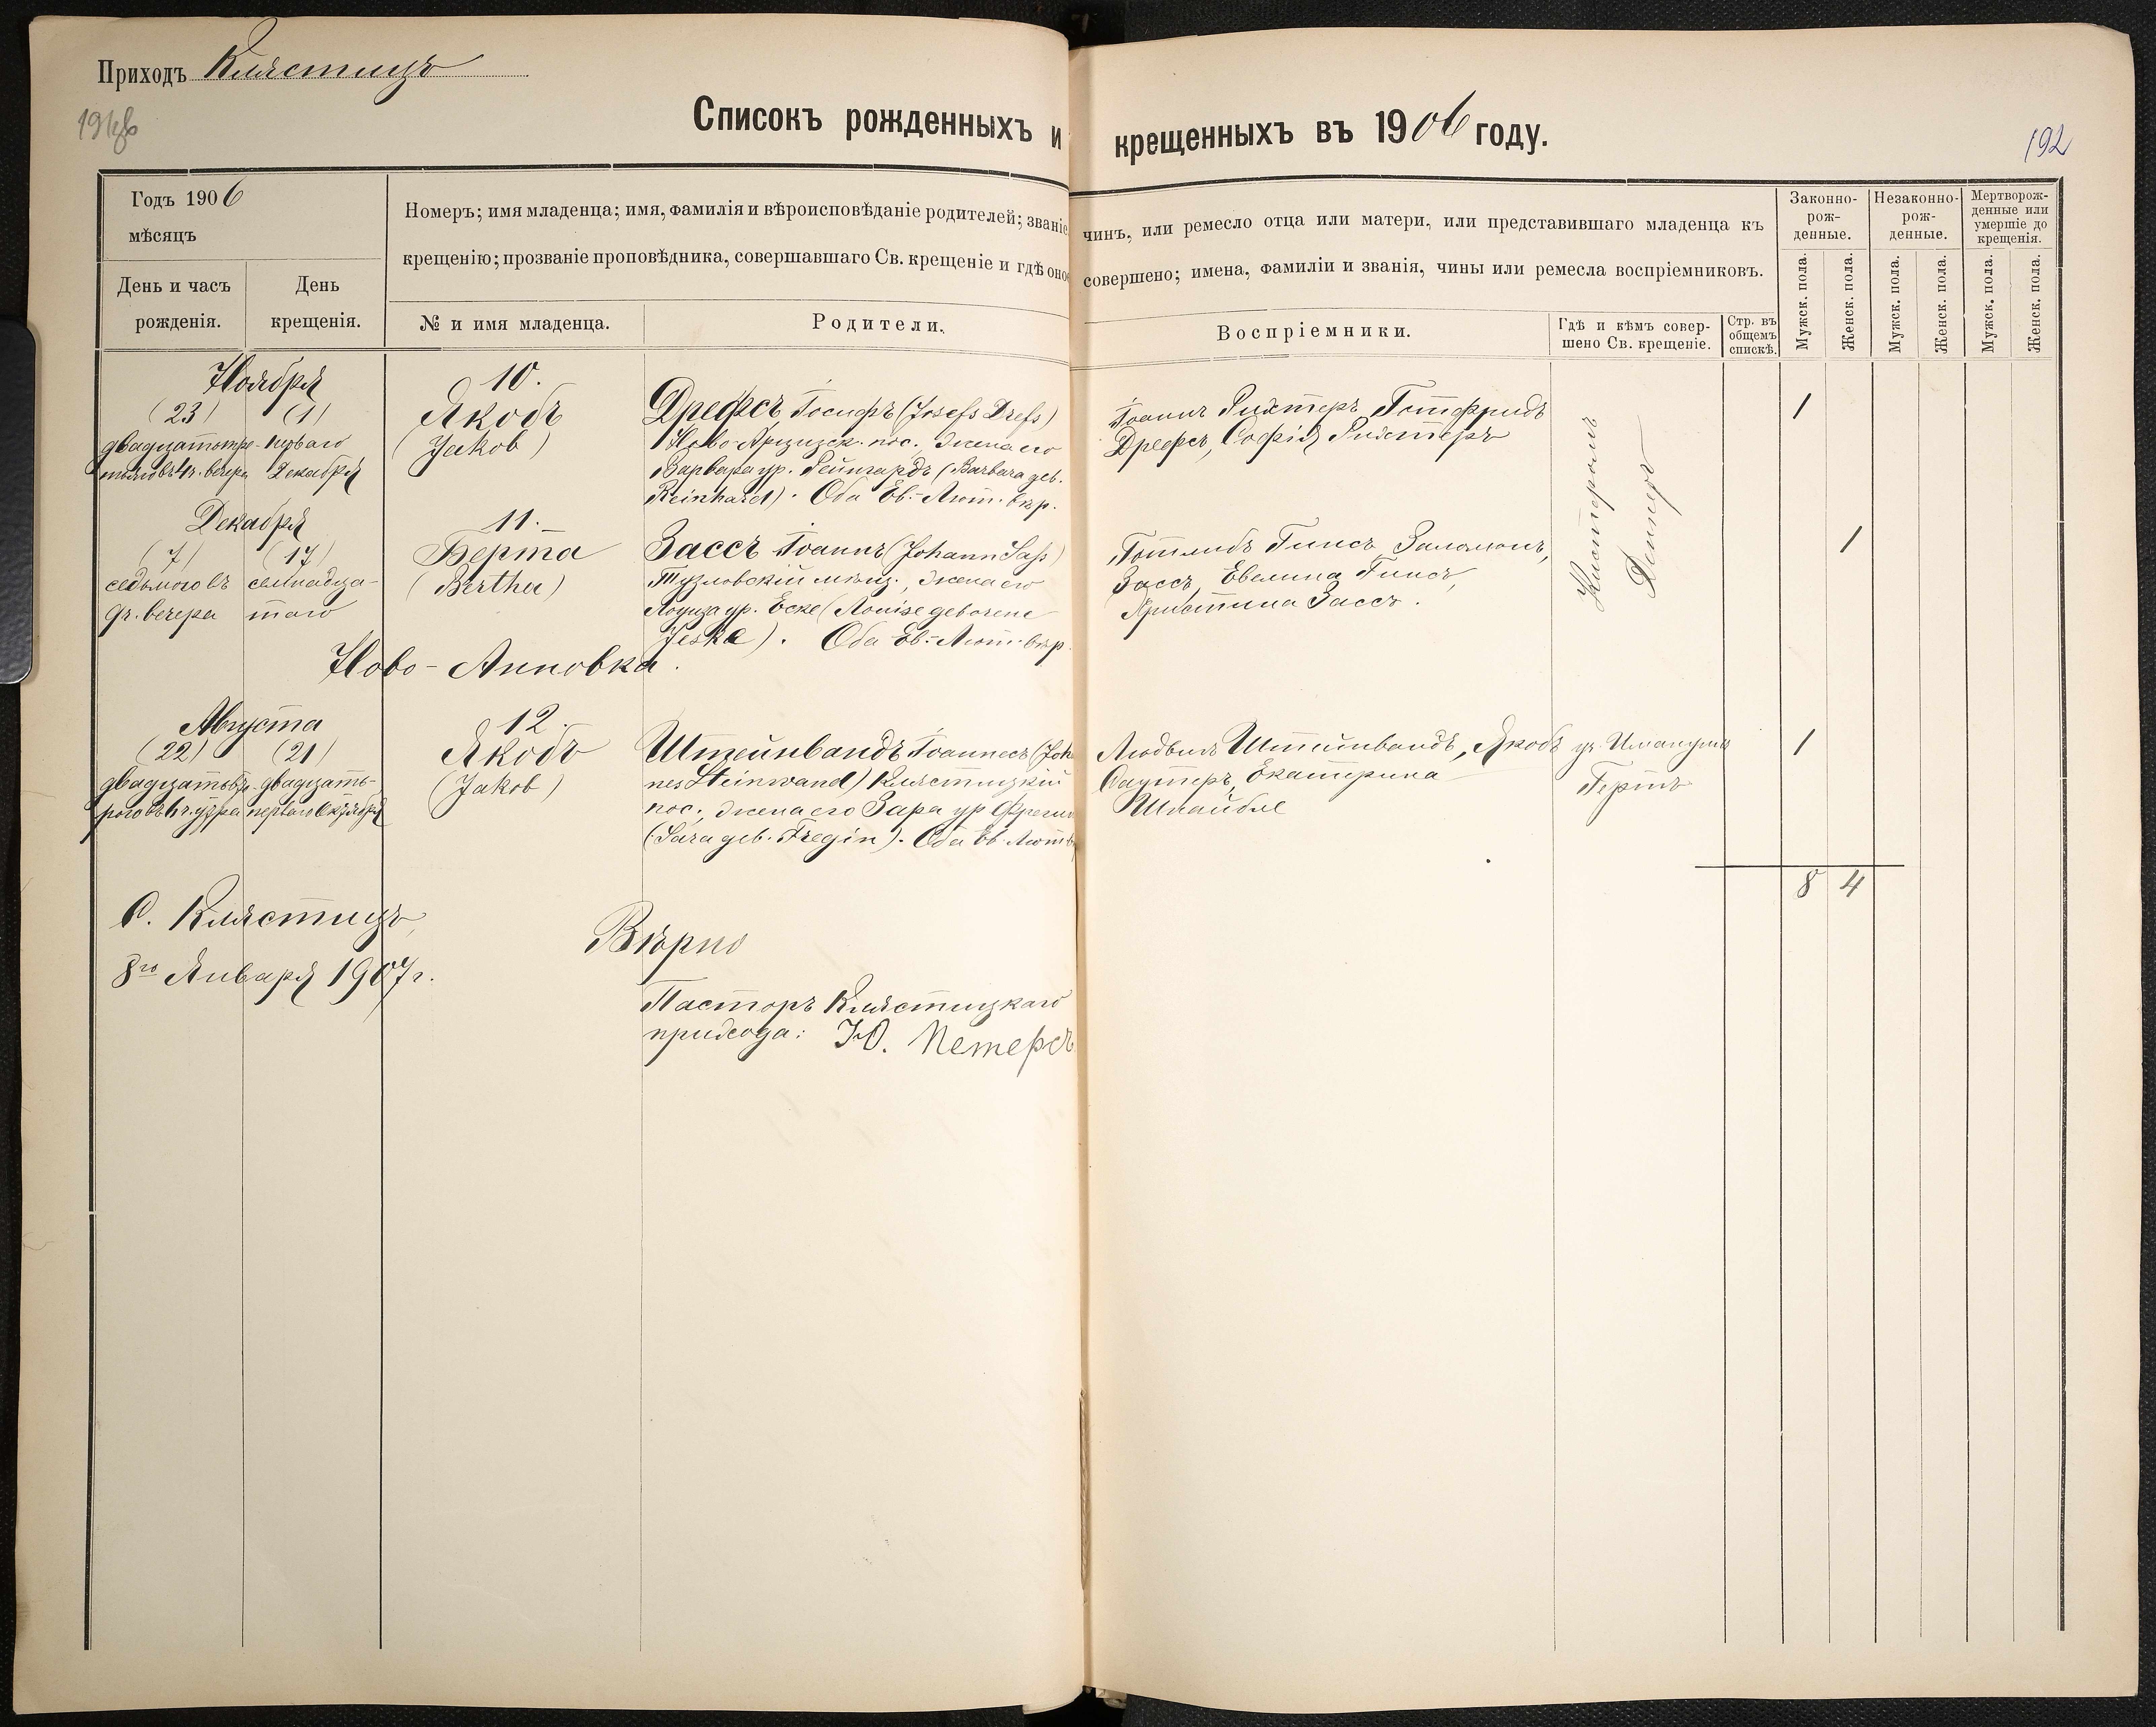 Приходъ Клястицъ
191об
Списокъ рожденныхъ и крещенныхъ въ 1906 году.
192
Годъ 1906
мѣсяцъ
День и часъ рожденія.
День крещенія.
Номеръ; имя младенца; имя, фамилія и вѣроисповѣданіе родителей; званіе чинъ, или ремесло отца или матери, или представившаго младенца къ
крещенію; прозваніе проповѣдника, совершавшаго Св. крещеніе и гдѣ оное совершено; имена, фамиліи и званія, чины или ремесла воспріемниковъ.
№ и имя младенца.
Родители.
Воспріемники.
Гдѣ и кѣмъ совер-
шено Св. крещеніе.
Стр. въ
общемъ
спискѣ.
Законно-
рож-
денные.
Незаконно-
рож-
денные.
Мертворож-
денные или
умершіе до
крещенія.
Мужск. пола.
Женск. пола.
Мужск. пола.
Женск. пола.
Мужск. пола.
Женск. пола.
Ноября
(23) (1)
двадцатьтре- перваго
тьяго въ 4 ч. вечера Декабря
10.
Якобъ
(Jakob)
Дрефсъ Іосифъ (Josefs Drefs)
Ново-Арцизск. пос., жена его
Варвара ур. Рейнгардъ (Barbara geb.
Reinhardt). Оба Ев.-Лют. вѣр.
Іоаннъ Рихтеръ, Готфридъ
Дрефсъ, Софія Рихтеръ
1
Декабря
(7) (17)
седьмого въ семнадца-
9 ч. вечера таго
11.
Берта
(Bertha)
Зассъ Іоаннъ (Johann Saß)
Тузловскій мѣщ., жена его
Луиза ур. Еске (Louise geborene
Jeske). Оба Ев.-Лют. вѣр.
Готлибъ Гинсъ, Заломонъ
Зассъ, Евелина Гинсъ,
Христина Зассъ.
Кистеромъ
Деннеръ
1
Ново-Анновка.
Августа
(22) (21)
двадцатьвто- двадцать-
рого въ 6 ч. утра перваго Октября
12.
Якобъ
(Jakob)
Штейнвандъ Іоаннесъ (Joh
nes Steinwand) Клястицкій
пос., жена его Зара ур Фрегин
(Sara geb. Fregin). Оба Ев. Лют. в
Людвигъ Штейнвандъ, Якобъ
Саутеръ, Екатерина
Шнайбле
уч. Имануилъ
Гертъ
1
8 4
С. Клястицъ,
8го Января 1907 г.
Вѣрно
Пасторъ Клястицкаго
прихода: Ю. Петерсъ